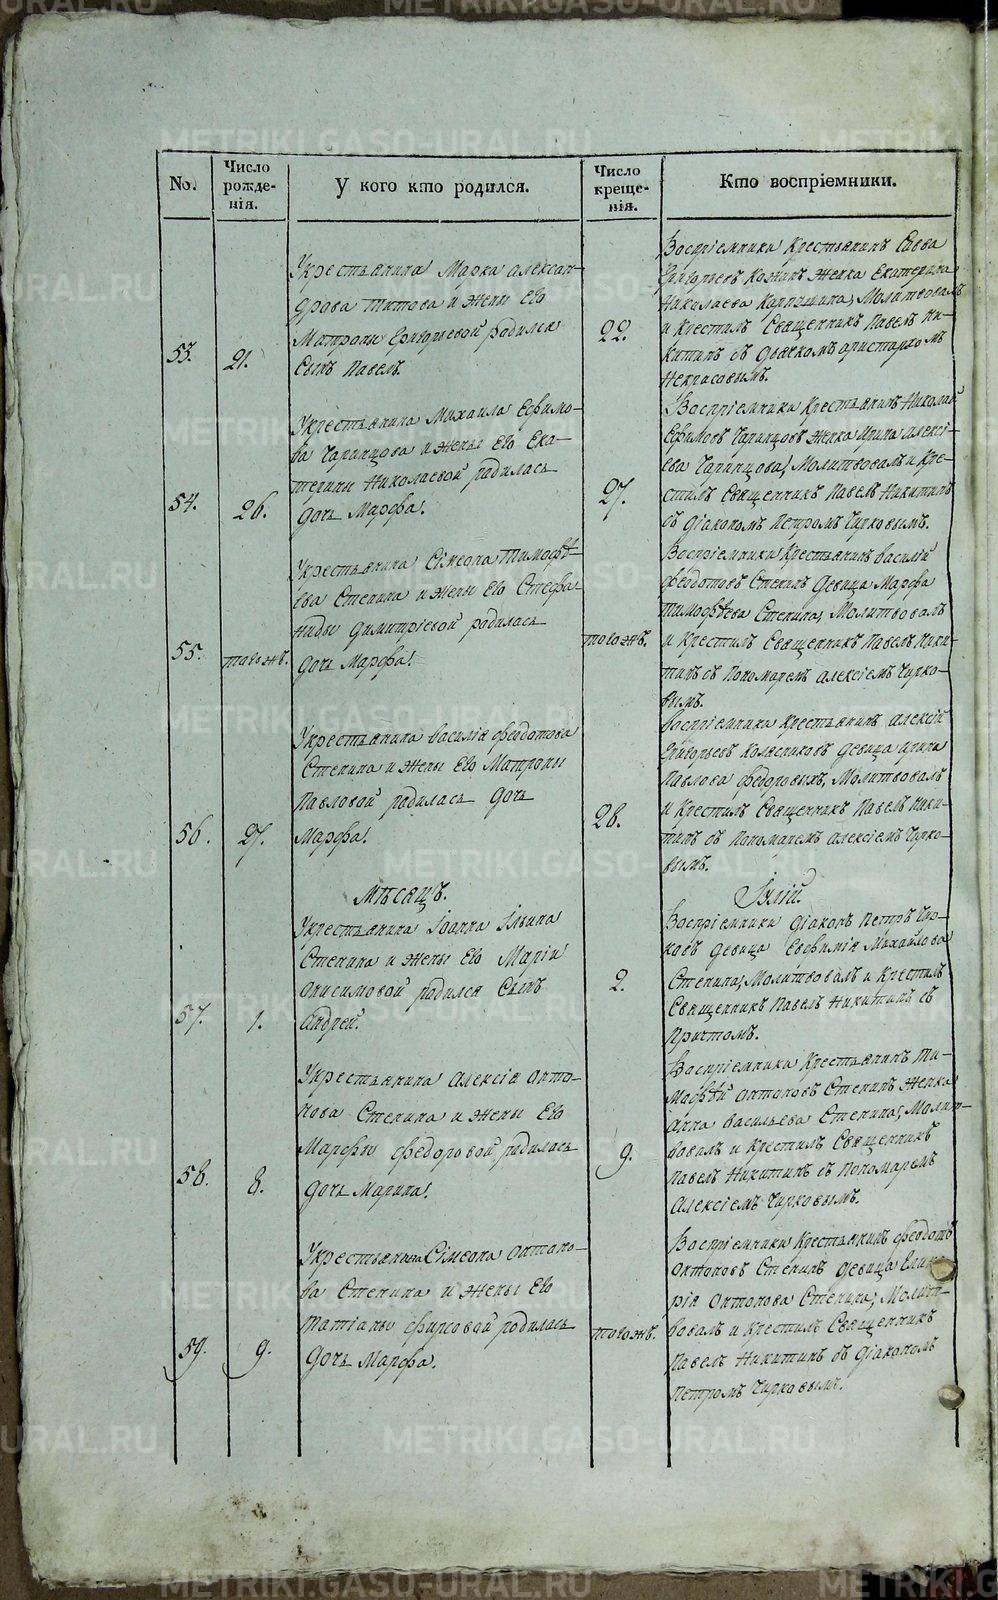 METRIKI.GASO-URAL.RU
No.
Число рожде-
нія.
У кого кто родился.
Число креще-
нія.
Кто воспріемники.
53.
21.
Укрестьянина Марка Алексан-
дрова Титова и жены Его
Матроны Григорьевой родился
Сынъ Павелъ.
22.
Воспріемники Крестьянинъ Савва
Григорьевъ Кожинъ женка Екатерина
Николаева Молитвовалъ
и Крестилъ Священникъ Павелъ Ни-
китинъ съ дьячкомъ Аристархомъ
Некрасовымъ.
54.
26.
Укрестьянина Михаила Ефимо-
ва Чаранцова и жены Его Ека-
терины Николаевой родилась
Дочь Марфа.
27.
Воспріемники Крестьянинъ Николай
Ефимовъ Чаранцовъ женка Ирина Алексі-
ева Чаранцова, Молитвовалъ и Кре-
стилъ Священникъ Павелъ Никитинъ
съ Діакономъ Петромъ Чирковымъ.
55.
тогожъ.
Укрестьянина Сімеона Тимофѣ-
ева Степина и жены Его Стефа-
ниды Димитріевой родилась
Дочь Марфа.
тогожъ.
Воспріемники Крестьянинъ Василій
Федотовъ Степинъ Девица Марфа
Тимофѣева Степина, Молитвовалъ
и Крестилъ Священникъ Павелъ Ники-
тинъ съ Пономаремъ Алексіемъ Чирко-
вымъ.
56.
27.
Укрестьянина Василія Федотова
Степина и жены Его Матроны
Павловой родилась Дочь
Марфа.
28.
Воспріемники Крестьянинъ Алексій
Григорьевъ Колясниковъ Девица Ирина
Павлова Федоровыхъ, Молитвовалъ
и Крестилъ Священникъ Павелъ Ники-
тинъ съ Пономаремъ Алексіемъ Чирко-
вымъ.
Мѣсяцъ.
Іулій.
57.
1.
Укрестьянина Іоанна Ильина
Степина и жены Его Маріи
Онисимовой родился Сынъ
Андрей.
2.
Воспріемники Діаконъ Петръ Чир-
ковъ Девица Евфимія Михайлова
Степина, Молитвовалъ и Крестилъ
Священникъ Павелъ Никитинъ съ
Причтомъ.
58.
8.
Укрестьянина Алексія Анто-
нова Степина и жены Его
Марфы Федоровой родилась
Дочь Марина.
9.
Воспріемники Крестьянинъ Ти-
мофѣй Антоновъ Степинъ Женка
Анна Васильева Степина, Молит-
вовалъ и Крестилъ Священникъ
Павелъ Никитинъ съ Пономаремъ
Алексіемъ Чирковымъ.
59.
9.
Укрестьянина Сімеона Антоно-
ва Степина и жены Его
Татіаны Фирсовой родилась
Дочь Марфа.
тогожъ.
Воспріемники Крестьянинъ Федотъ
Антоновъ Степинъ Девица
Антонова Степина, Молит-
вовалъ и Крестилъ Священникъ
Павелъ Никитинъ съ Діакономъ
Петромъ Чирковымъ.